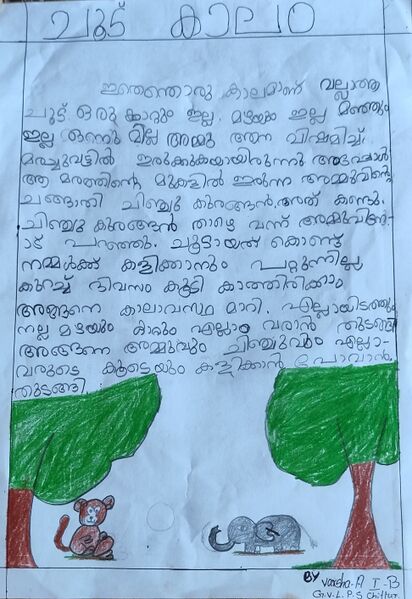 ചൂട് കാലം
ഇതെന്തൊരു കാലമാണ് വല്ലാത്ത
ചൂട് ഒരു കാറ്റും ഇല്ല. മഴയും ഇല്ല മഞ്ഞും
ഇല്ല ഒന്നു മില്ല അമ്മു ആന വിഷമിച്ച്.
മരച്ചുവട്ടിൽ ഇരുക്കുകയായിരുന്നു അപ്പോൾ
ആ മരത്തിന്റെ മുകളിൽ ഇരുന്ന അമ്മുവിന്റെ
ചങ്ങാതി ചിഞ്ചു കുരങ്ങൻ അത് കണ്ടു.
ചിഞ്ചു കുരങ്ങൻ താഴെ വന്ന് അമ്മുവിനോ-
ട് പറഞ്ഞു. ചൂടായത് കൊണ്ട്
നമ്മൾക്ക് കളിക്കാനും പറ്റുന്നില്ല
കുറച്ച് ദിവസം കൂടി കാത്തിരിക്കാം
അങ്ങനെ കാലാവസ്ഥ മാറി. എല്ലായിടത്തും
നല്ല മഴയും കാറ്റും എല്ലാം വരാൻ തുടങ്ങി
അങ്ങനെ അമ്മുവും ചിഞ്ചുവും എല്ലാ-
വരുടെ കൂടെയും കളിക്കാൻ പോവാൻ
തുടങ്ങി.
BY Varsha. A I-B
G.V.L.P.S Chittur